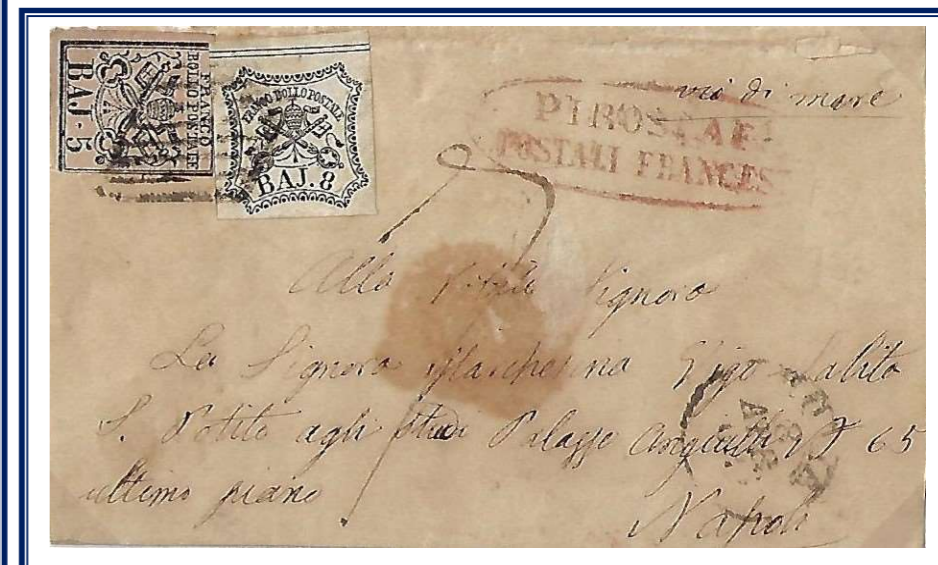 FRANCO
BOLLO POSTALE
BAJ. 5
FRANCO BOLLO POSTALE
BAJ. 8
via di mare
PIROSCAFI
POSTALI FRANCES
Alla Nobile Signora
La Signora Marchesina Vigo Salita
S. Potito agli Studi Palazzo 65
ultimo piano
Napoli